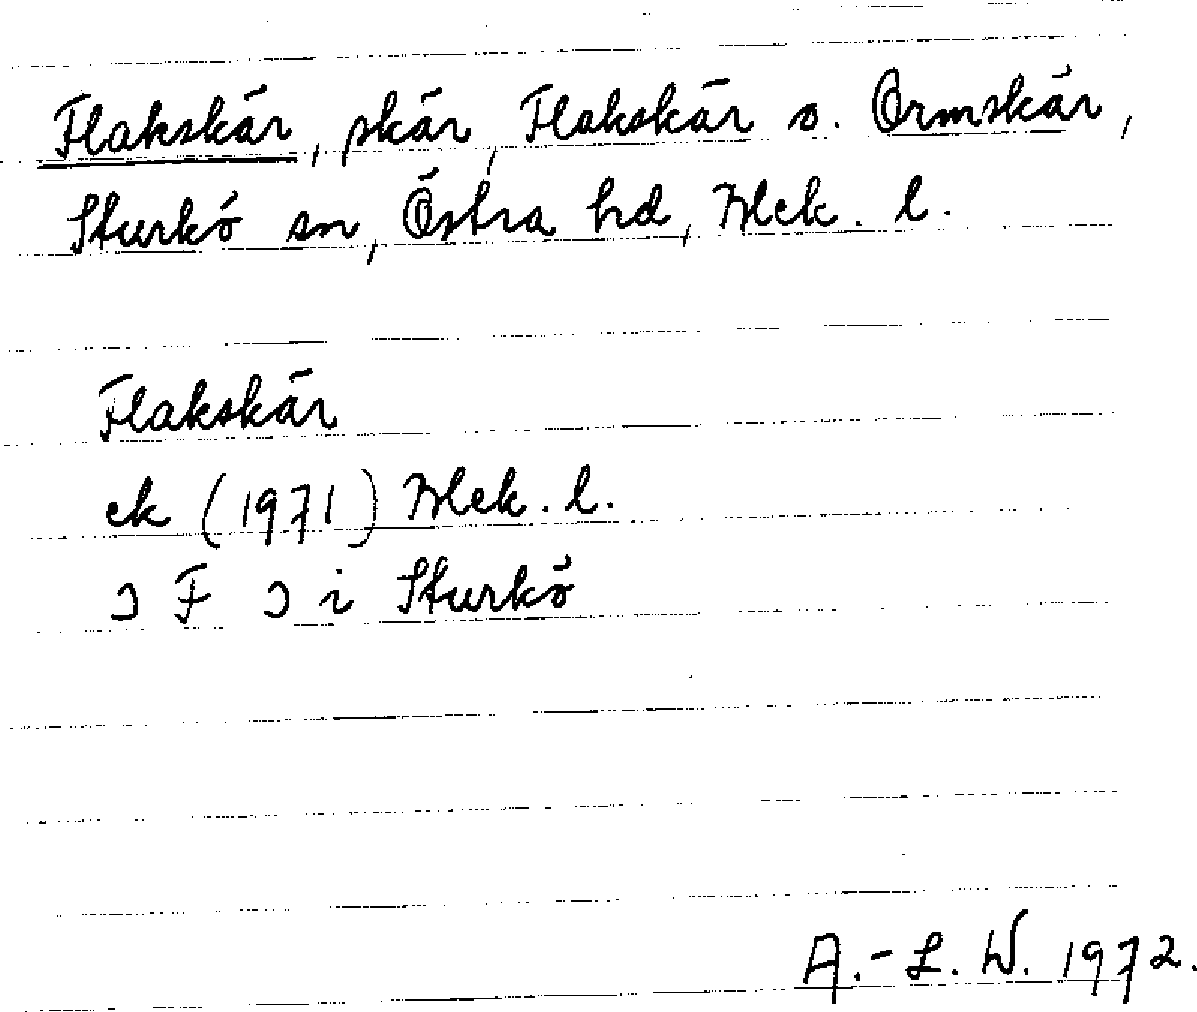 Flakskär, skär, Flakskär o. Ormskär,
Sturkö sn, Östra hd, Blek. l.
Flakskär
ek (1971) Blek. l.
ɔ F ɔ i Sturkö
A.-L. W. 1972.